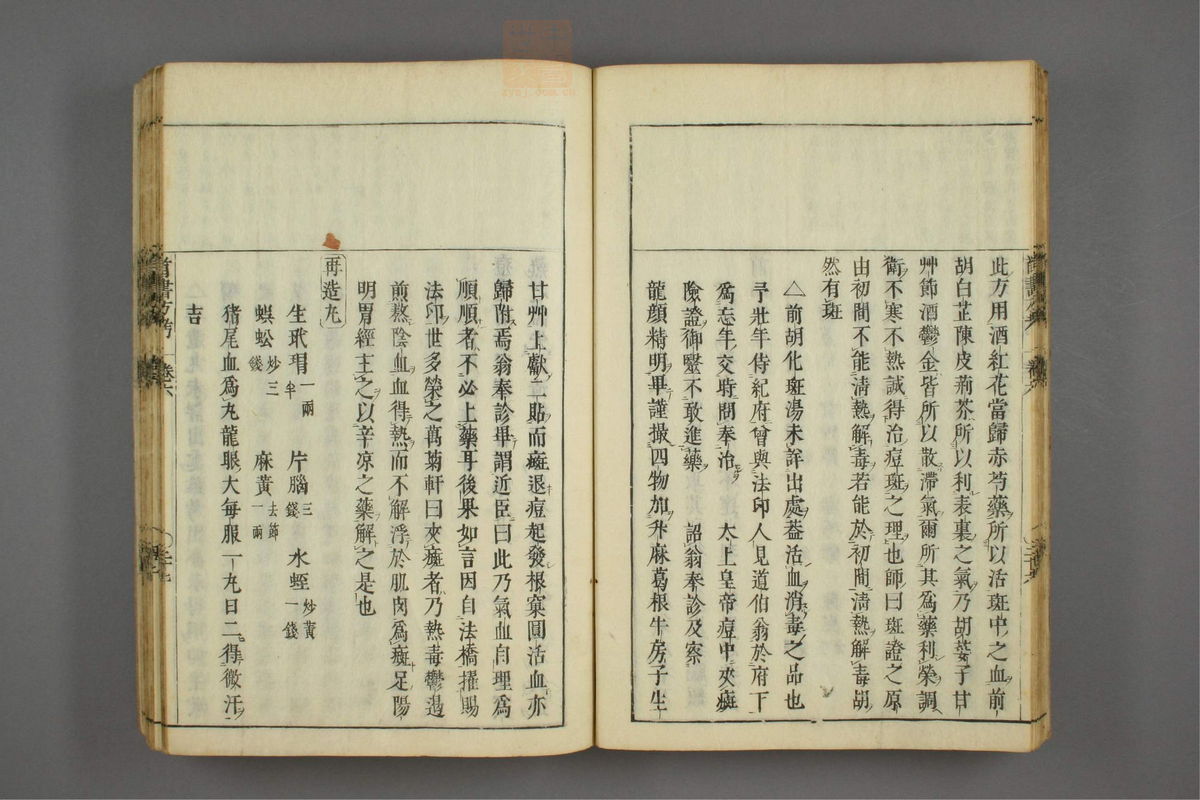 此方用酒紅花當歸赤芍藥所以活斑中之血前
胡白芷陳皮荊芥所以利表裏之氣乃胡荽子甘
艸飾酒鬱金皆所以散滯氣爾所其爲藥利榮調
衛不寒不熱誠得治痘斑之理也師曰斑證之原
由初間不能淸熱解毒若能於初間淸熱解毒胡
然有斑
△前胡化斑湯未詳出處葢活血消毒之品也
予壯年侍紀府曾與法印人見道伯翁於府下
爲忘年交時問奉治 太上皇帝痘中夾癍
險證御毉不敢進藥 詔翁奉診及察
龍顏精明畢謹撮四物加升麻葛根牛房子生
甘艸上獻二貼而癍退痘起發根窠圓活血亦
歸附焉翁奉診畢謂近臣曰此乃氣血自理爲
順順者不必上藥耳後果如言因自法橋擢賜
法印世多榮之萬菊軒曰夾癍者乃熱毒鬱遏
煎熬陰血血得熱而不解浮於肌肉爲癍足陽
明胃經主之以辛凉之藥解之是也
再造丸
生玳瑁一兩半 片腦三錢 水蛭炒黃一錢
蜈蚣炒三錢 麻黃去節一兩
猪尾血爲丸龍眼大每服一丸日二得微汗
吉
卷六